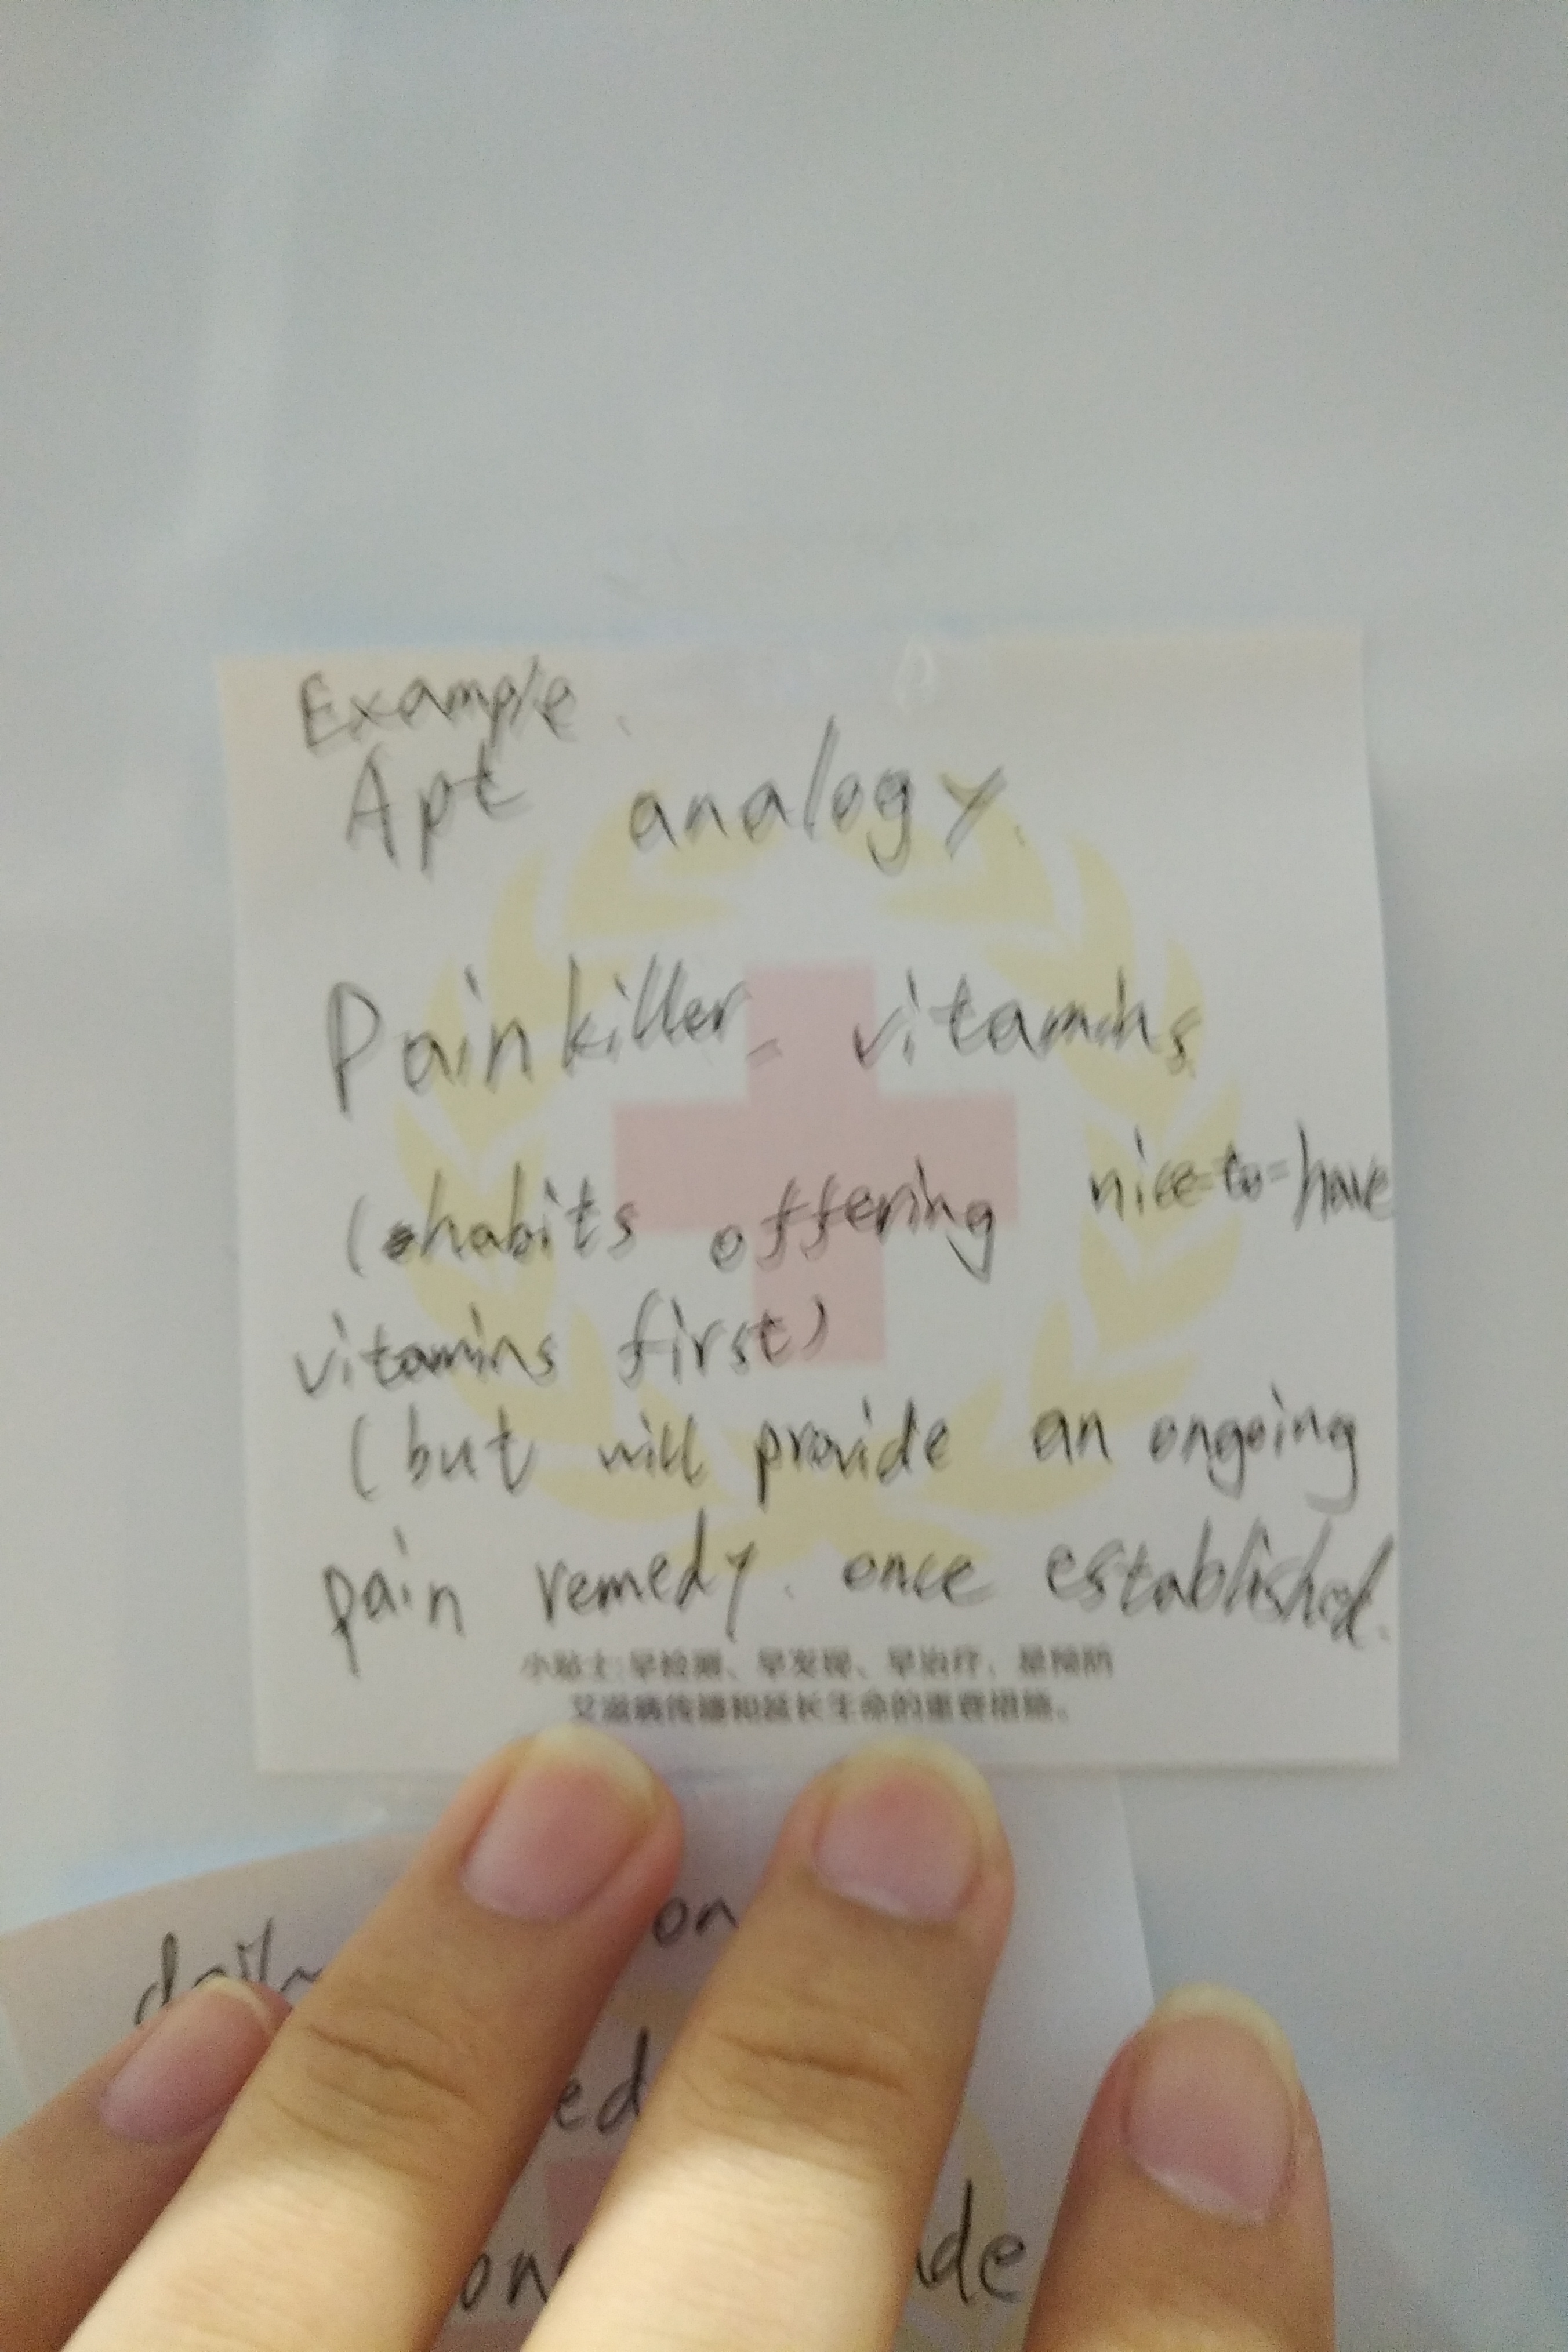 Example.
Apt analogy.
Painkiller vitamins
(habits offering nice-to-have
vitamins first)
(but will provide an ongoing
pain remedy. once established.
小贴士:早检测、早发现、早治疗,是预防
艾滋病传播和延长生命的重要措施。
on
ed
on
de